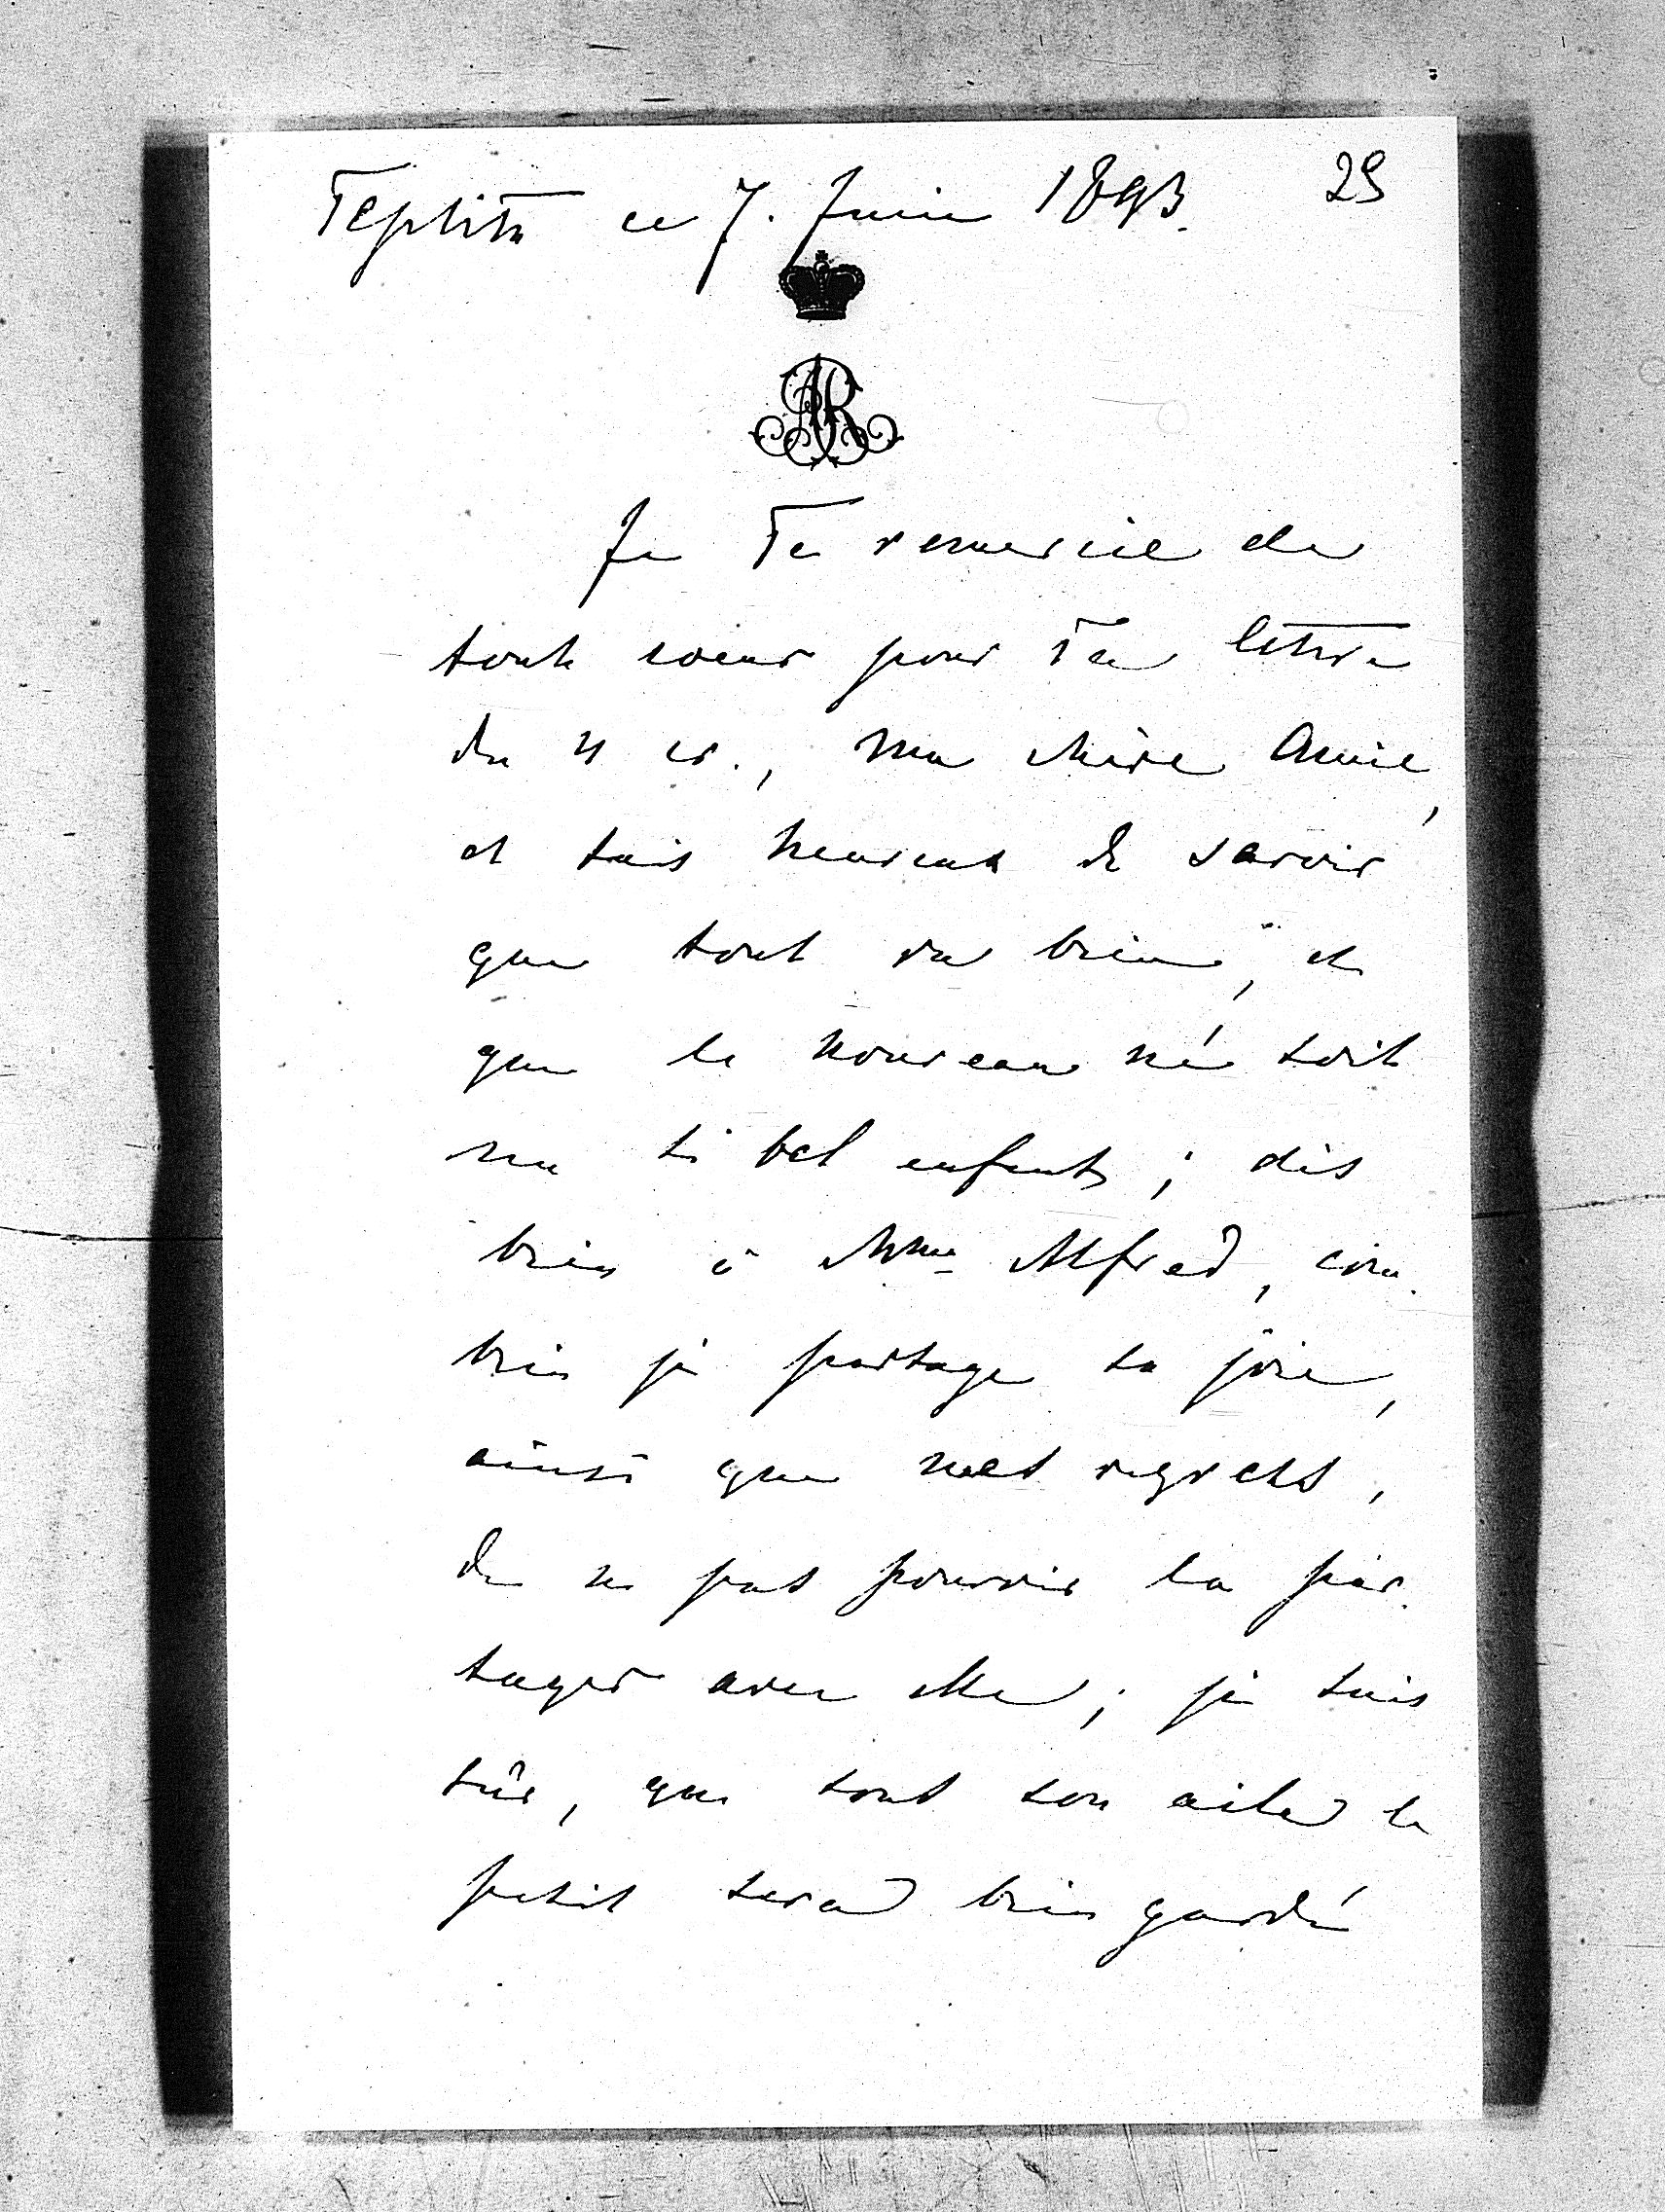 Teplitz ce 7. Juin 1893. 29
AR
Je Te remercie de
tout coeur pour Ta lettre
du 4 cr., ma chère Amie,
et suis heureux de savoir
que tout va bien, et
que le nouveau né soit
un si bel enfant; dis
bien à Mme Alfred, com-
bien je partage sa joie,
ainsi que mes regrets,
de ne pas pouvoir la par-
tager avec elle; je suis
sûr, que sous son aile le
petit sera bien gardé